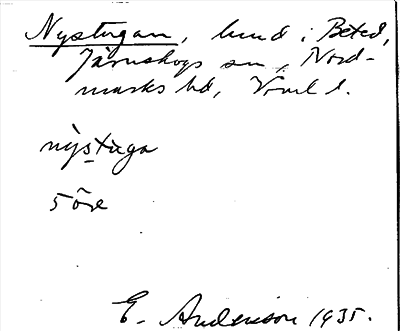 Nystugan, lund i Beted,
Järnskogs sn, Nord-
marks hd, Vrml l.
nỳstùga
5 öre
E. Anderson 1935.